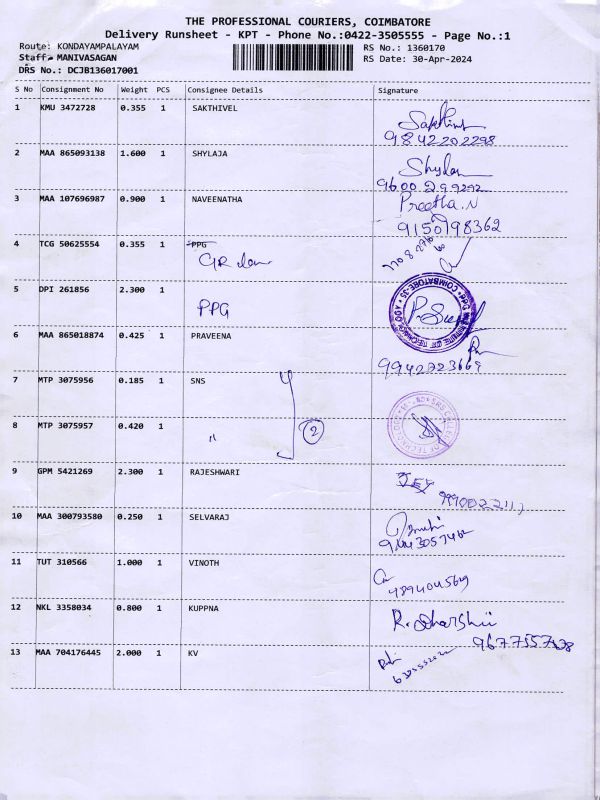 THE PROFESSIONAL COURIERS, COIMBATORE
Delivery Runsheet - KPT - Phone No.:0422-3505555 - Page No.:1
Route: KONDAYAMPALAYAM RS No.: 1360170
Staff: MANIVASAGAN RS Date: 30-Apr-2024
DRS No.: DCJB136017001
S No Consignment No Weight PCS Consignee Details Signature
1 KMU 3472728 0.355 1 SAKTHIVEL
9842202298
2 MAA 865093138 1.600 1 SHYLAJA
9600299292
3 MAA 107696987 0.900 1 NAVEENATHA Preetha.N
9150798362
4 TCG 50625554 0.355 1 PPG
GR
5 DPI 261856 2.300 1
PPG
COIMBATORE-35
6 MAA 865018874 0.425 1 PRAVEENA
9942223669
7 MTP 3075956 0.185 1 SNS
8 MTP 3075957 0.420 1
" 2
9 GPM 5421269 2.300 1 RAJESHWARI
10 MAA 300793580 0.250 1 SELVARAJ
11 TUT 310566 1.000 1 VINOTH
12 NKL 3358034 0.800 1 KUPPNA
R. Dharshii
13 MAA 704176445 2.000 1 KV